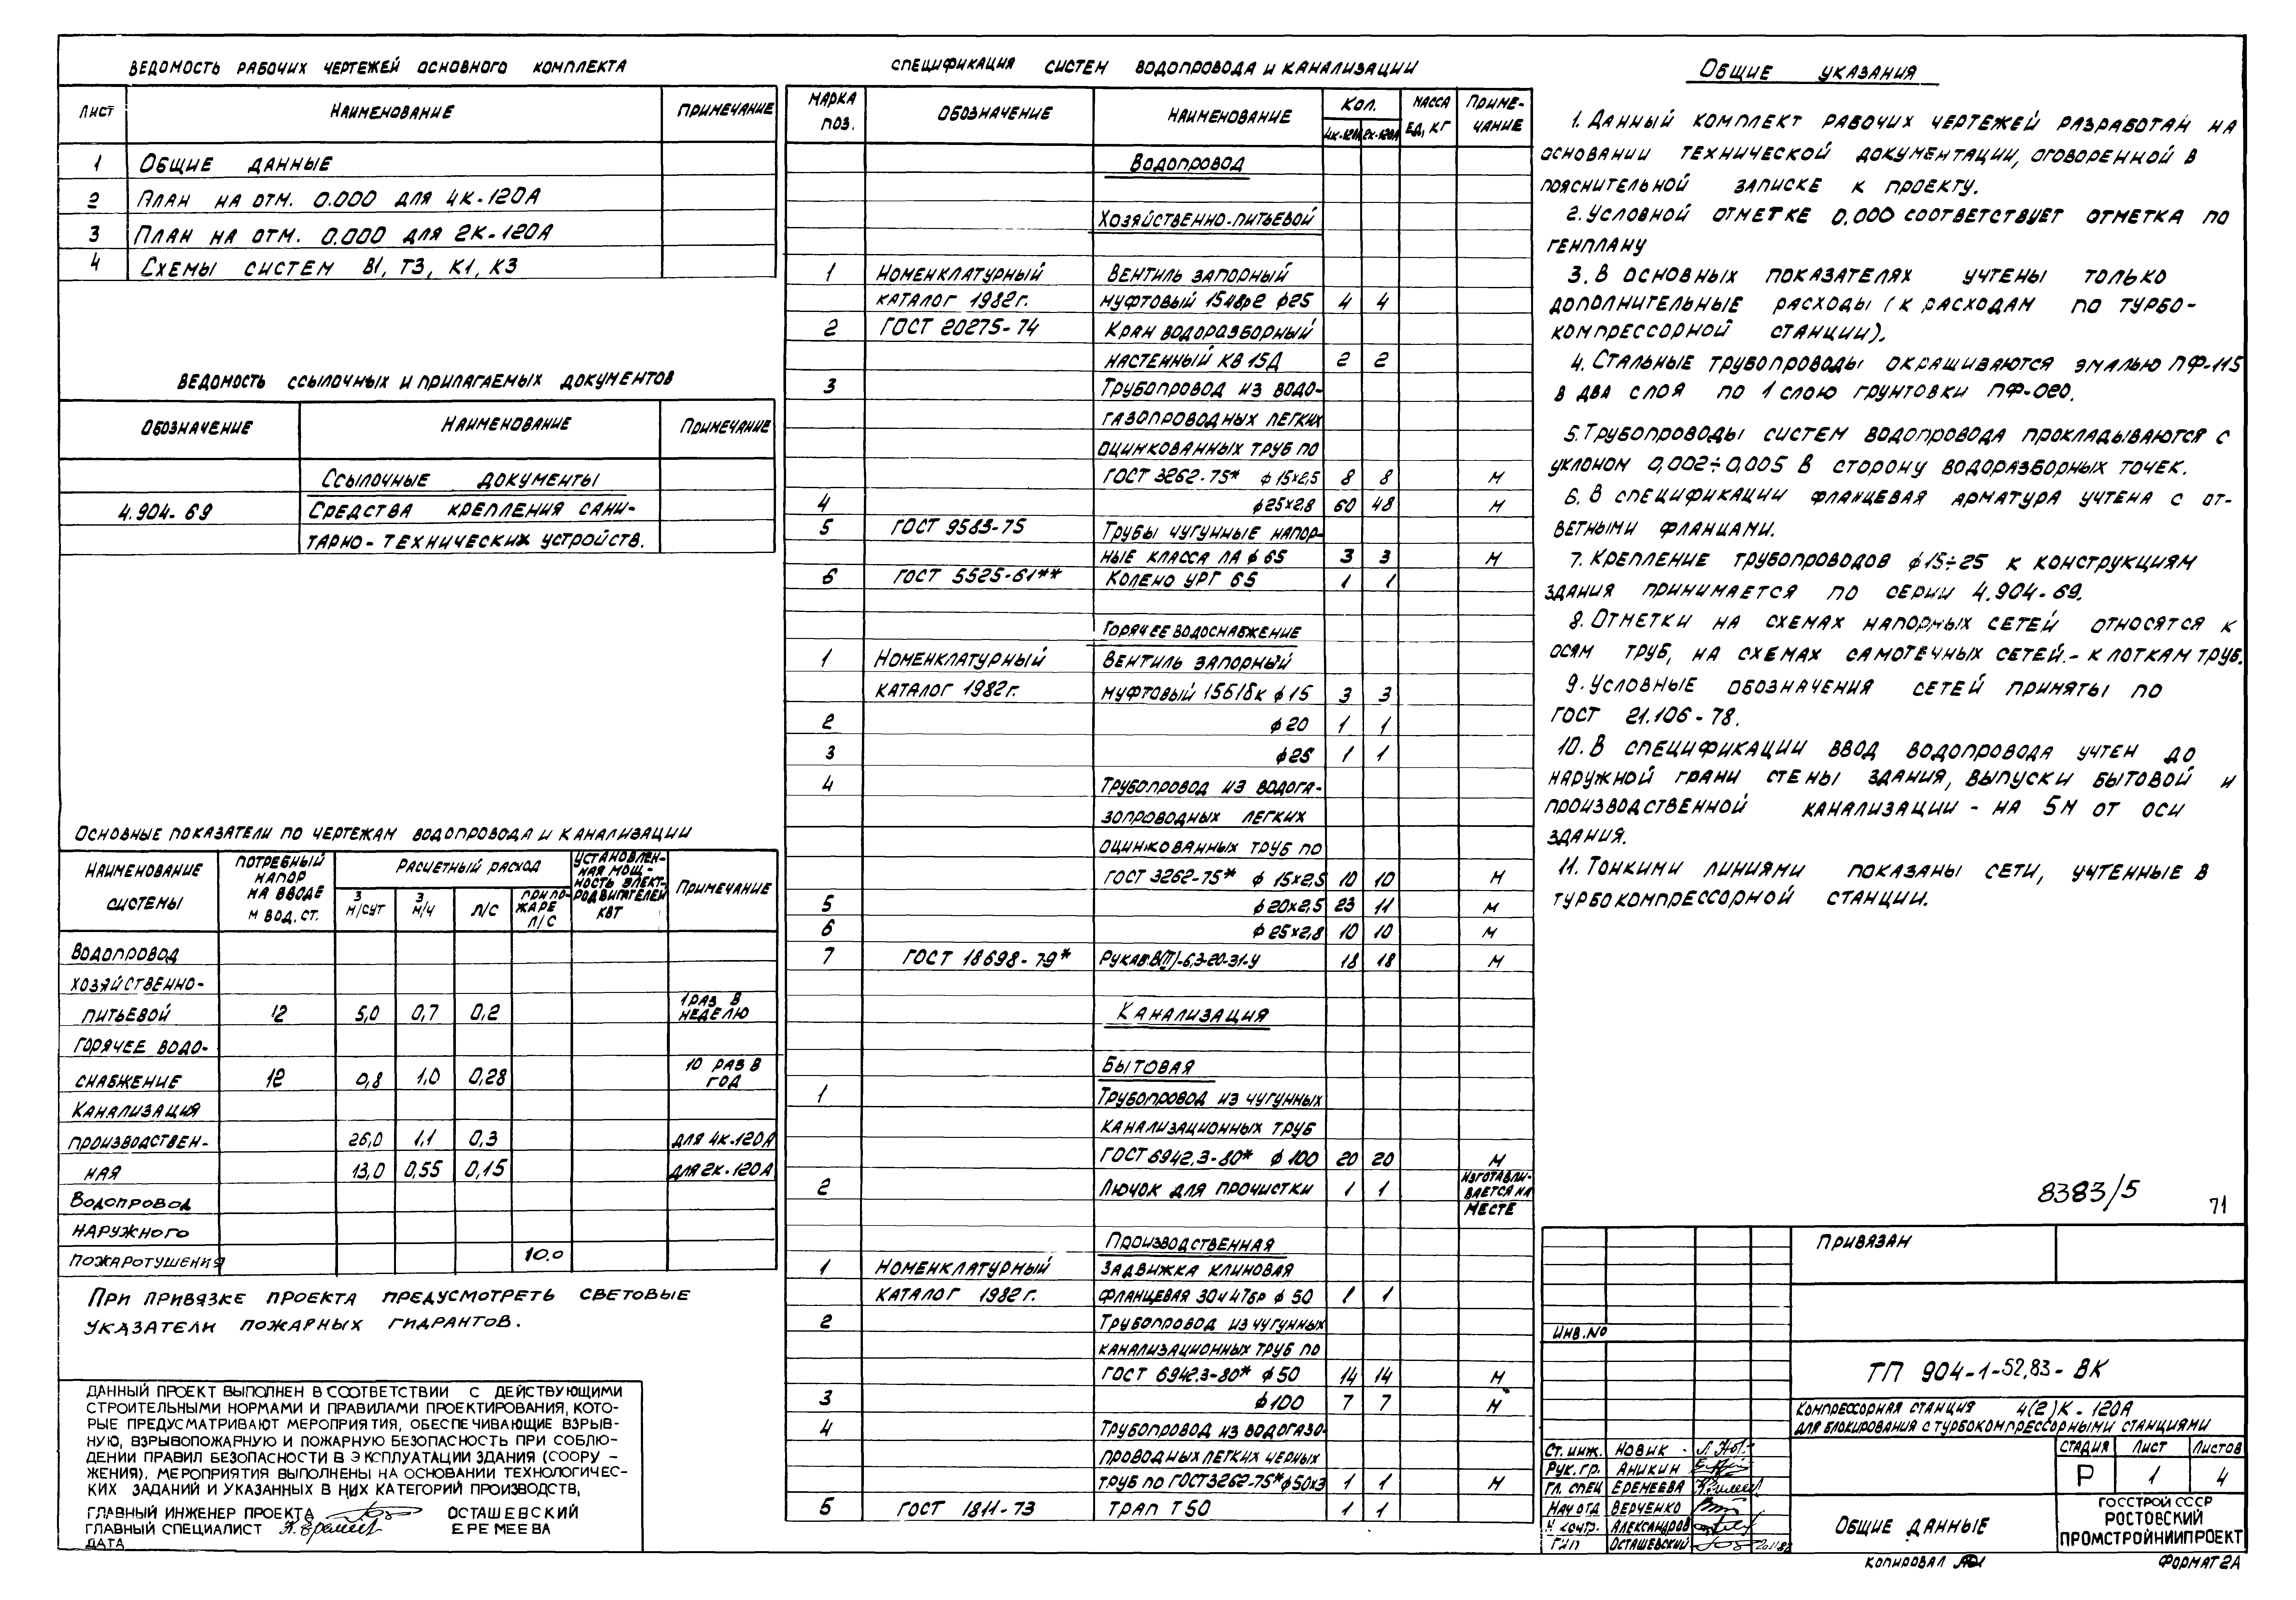 ВЕДОМОСТЬ РАБОЧИХ ЧЕРТЕЖЕЙ ОСНОВНОГО КОМПЛЕКТА
ЛИСТ НАИМЕНОВАНИЕ ПРИМЕЧАНИЕ
1 ОБЩИЕ ДАННЫЕ
2 ПЛАН НА ОТМ. 0.000 ДЛЯ 4К-120А
3 ПЛАН НА ОТМ. 0.000 ДЛЯ 2К-120А
4 СХЕМЫ СИСТЕМ В1, Т3, К1, К3
ВЕДОМОСТЬ ССЫЛОЧНЫХ И ПРИЛАГАЕМЫХ ДОКУМЕНТОВ
ОБОЗНАЧЕНИЕ НАИМЕНОВАНИЕ ПРИМЕЧАНИЕ
ССЫЛОЧНЫЕ ДОКУМЕНТЫ
4.904-69 СРЕДСТВА КРЕПЛЕНИЯ САНИ-
ТАРНО-ТЕХНИЧЕСКИХ УСТРОЙСТВ.
ОСНОВНЫЕ ПОКАЗАТЕЛИ ПО ЧЕРТЕЖАМ ВОДОПРОВОДА И КАНАЛИЗАЦИИ
НАИМЕНОВАНИЕ СИСТЕМЫ
ПОТРЕБНЫЙ НАПОР НА ВВОДЕ М ВОД. СТ.
РАСЧЕТНЫЙ РАСХОД
М³/СУТ М³/Ч Л/С ПРИ ПО-ЖАРЕ Л/С
УСТАНОВЛЕН-НАЯ МОЩ-НОСТЬ ЭЛЕКТ-РОДВИГАТЕЛЕЙ КВТ
ПРИМЕЧАНИЕ
ВОДОПРОВОД
ХОЗЯЙСТВЕННО-
ПИТЬЕВОЙ 12 5,0 0,7 0,2 1 РАЗ В НЕДЕЛЮ
ГОРЯЧЕЕ ВОДО-
СНАБЖЕНИЕ 12 0,8 1,0 0,28 10 РАЗ В ГОД
КАНАЛИЗАЦИЯ
ПРОИЗВОДСТВЕН- 26,0 1,1 0,3 ДЛЯ 4К-120А
НАЯ 13,0 0,55 0,15 ДЛЯ 2К-120А
ВОДОПРОВОД
НАРУЖНОГО
ПОЖАРОТУШЕНИЯ 10.0
ПРИ ПРИВЯЗКЕ ПРОЕКТА ПРЕДУСМОТРЕТЬ СВЕТОВЫЕ
УКАЗАТЕЛИ ПОЖАРНЫХ ГИДРАНТОВ.
ДАННЫЙ ПРОЕКТ ВЫПОЛНЕН В СООТВЕТСТВИИ С ДЕЙСТВУЮЩИМИ
СТРОИТЕЛЬНЫМИ НОРМАМИ И ПРАВИЛАМИ ПРОЕКТИРОВАНИЯ, КОТО-
РЫЕ ПРЕДУСМАТРИВАЮТ МЕРОПРИЯТИЯ, ОБЕСПЕЧИВАЮЩИЕ ВЗРЫВ-
НУЮ, ВЗРЫВОПОЖАРНУЮ И ПОЖАРНУЮ БЕЗОПАСНОСТЬ ПРИ СОБЛЮ-
ДЕНИИ ПРАВИЛ БЕЗОПАСНОСТИ В ЭКСПЛУАТАЦИИ ЗДАНИЯ (СООРУ-
ЖЕНИЯ). МЕРОПРИЯТИЯ ВЫПОЛНЕНЫ НА ОСНОВАНИИ ТЕХНОЛОГИЧЕС-
КИХ ЗАДАНИЙ И УКАЗАННЫХ В НИХ КАТЕГОРИЙ ПРОИЗВОДСТВ,
ГЛАВНЫЙ ИНЖЕНЕР ПРОЕКТА ОСТАШЕВСКИЙ
ГЛАВНЫЙ СПЕЦИАЛИСТ ЕРЕМЕЕВА
ДАТА
СПЕЦИФИКАЦИЯ СИСТЕМ ВОДОПРОВОДА И КАНАЛИЗАЦИИ
МАРКА ПОЗ. ОБОЗНАЧЕНИЕ НАИМЕНОВАНИЕ КОЛ. 4К-120А 2К-120А МАССА ЕД, КГ ПРИМЕ-ЧАНИЕ
ВОДОПРОВОД
ХОЗЯЙСТВЕННО-ПИТЬЕВОЙ
1 НОМЕНКЛАТУРНЫЙ ВЕНТИЛЬ ЗАПОРНЫЙ
КАТАЛОГ 1982г. МУФТОВЫЙ 15ч8р2 ϕ25 4 4
2 ГОСТ 20275-74 КРАН ВОДОРАЗБОРНЫЙ
НАСТЕННЫЙ КВ 15Д 2 2
3 ТРУБОПРОВОД ИЗ ВОДО-
ГАЗОПРОВОДНЫХ ЛЕГКИХ
ОЦИНКОВАННЫХ ТРУБ ПО
ГОСТ 3262-75* ϕ15х2,5 8 8 М
4 ϕ25х2,8 60 48 М
5 ГОСТ 9583-75 ТРУБЫ ЧУГУННЫЕ НАПОР-
НЫЕ КЛАССА ЛА ϕ65 3 3 М
6 ГОСТ 5525-61** КОЛЕНО УРГ 65 1 1
ГОРЯЧЕЕ ВОДОСНАБЖЕНИЕ
1 НОМЕНКЛАТУРНЫЙ ВЕНТИЛЬ ЗАПОРНЫЙ
КАТАЛОГ 1982г. МУФТОВЫЙ 15Б1бк ϕ15 3 3
2 ϕ20 1 1
3 ϕ25 1 1
4 ТРУБОПРОВОД ИЗ ВОДОГА-
ЗОПРОВОДНЫХ ЛЕГКИХ
ОЦИНКОВАННЫХ ТРУБ ПО
ГОСТ 3262-75* ϕ 15х2,5 10 10 М
5 ϕ20х2,5 23 11 М
6 ϕ25х2,8 10 10 М
7 ГОСТ 18698-79* РУКАВ В(II)-6,3-20-31-У 18 18 М
КАНАЛИЗАЦИЯ
БЫТОВАЯ
1 ТРУБОПРОВОД ИЗ ЧУГУННЫХ
КАНАЛИЗАЦИОННЫХ ТРУБ
ГОСТ 6942.3-80* ϕ100 20 20 М
2 ЛЮЧОК ДЛЯ ПРОЧИСТКИ 1 1 ИЗГОТАВЛИ-ВАЕТСЯ НА МЕСТЕ
ПРОИЗВОДСТВЕННАЯ
1 НОМЕНКЛАТУРНЫЙ ЗАДВИЖКА КЛИНОВАЯ
КАТАЛОГ 1982г. ФЛАНЦЕВАЯ 30ч47бр ϕ50 1 1
2 ТРУБОПРОВОД ИЗ ЧУГУННЫХ
КАНАЛИЗАЦИОННЫХ ТРУБ ПО
ГОСТ 6942.3-80* ϕ50 14 14 М
3 ϕ100 7 7 М
4 ТРУБОПРОВОД ИЗ ВОДОГАЗО-
ПРОВОДНЫХ ЛЕГКИХ ЧЕРНЫХ
ТРУБ ПО ГОСТ 3262-75* ϕ50х3 1 1 М
5 ГОСТ 1811-73 ТРАП Т50 1 1
ОБЩИЕ УКАЗАНИЯ
1. ДАННЫЙ КОМПЛЕКТ РАБОЧИХ ЧЕРТЕЖЕЙ РАЗРАБОТАН НА
ОСНОВАНИИ ТЕХНИЧЕСКОЙ ДОКУМЕНТАЦИИ, ОГОВОРЕННОЙ В
ПОЯСНИТЕЛЬНОЙ ЗАПИСКЕ К ПРОЕКТУ.
2. УСЛОВНОЙ ОТМЕТКЕ 0.000 СООТВЕТСТВУЕТ ОТМЕТКА ПО
ГЕНПЛАНУ
3. В ОСНОВНЫХ ПОКАЗАТЕЛЯХ УЧТЕНЫ ТОЛЬКО
ДОПОЛНИТЕЛЬНЫЕ РАСХОДЫ (К РАСХОДАМ ПО ТУРБО-
КОМПРЕССОРНОЙ СТАНЦИИ).
4. СТАЛЬНЫЕ ТРУБОПРОВОДЫ ОКРАШИВАЮТСЯ ЭМАЛЬЮ ПФ-115
В ДВА СЛОЯ ПО 1 СЛОЮ ГРУНТОВКИ ПФ-020.
5. ТРУБОПРОВОДЫ СИСТЕМ ВОДОПРОВОДА ПРОКЛАДЫВАЮТСЯ С
УКЛОНОМ 0,002÷0,005 В СТОРОНУ ВОДОРАЗБОРНЫХ ТОЧЕК.
6. В СПЕЦИФИКАЦИИ ФЛАНЦЕВАЯ АРМАТУРА УЧТЕНА С ОТ-
ВЕТНЫМИ ФЛАНЦАМИ.
7. КРЕПЛЕНИЕ ТРУБОПРОВОДОВ ϕ15÷25 К КОНСТРУКЦИЯМ
ЗДАНИЯ ПРИНИМАЕТСЯ ПО СЕРИИ 4.904-69.
8. ОТМЕТКИ НА СХЕМАХ НАПОРНЫХ СЕТЕЙ ОТНОСЯТСЯ К
ОСЯМ ТРУБ, НА СХЕМАХ САМОТЕЧНЫХ СЕТЕЙ.- К ЛОТКАМ ТРУБ.
9. УСЛОВНЫЕ ОБОЗНАЧЕНИЯ СЕТЕЙ ПРИНЯТЫ ПО
ГОСТ 21.106-78.
10. В СПЕЦИФИКАЦИИ ВВОД ВОДОПРОВОДА УЧТЕН ДО
НАРУЖНОЙ ГРАНИ СТЕНЫ ЗДАНИЯ, ВЫПУСКИ БЫТОВОЙ И
ПРОИЗВОДСТВЕННОЙ КАНАЛИЗАЦИИ - НА 5М ОТ ОСИ
ЗДАНИЯ.
11. ТОНКИМИ ЛИНИЯМИ ПОКАЗАНЫ СЕТИ, УЧТЕННЫЕ В
ТУРБОКОМПРЕССОРНОЙ СТАНЦИИ.
8383/5 71
ПРИВЯЗАН
ИНВ.№
ТП 904-1-52.83-ВК
КОМПРЕССОРНАЯ СТАНЦИЯ 4(2)К-120А
ДЛЯ БЛОКИРОВАНИЯ С ТУРБОКОМПРЕССОРНЫМИ СТАНЦИЯМИ
СТ. ИНЖ. НОВИК
РУК. ГР. АНИКИН
ГЛ. СПЕЦ ЕРЕМЕЕВА
НАЧ ОТД ВЕРЧЕНКО
Н КОНТР. АЛЕКСАНДРОВ
ГИП ОСТАШЕВСКИЙ
СТАДИЯ ЛИСТ ЛИСТОВ
Р 1 4
ОБЩИЕ ДАННЫЕ
ГОССТРОЙ СССР
РОСТОВСКИЙ
ПРОМСТРОЙНИИПРОЕКТ
КОПИРОВАЛ ФОРМАТ 2А